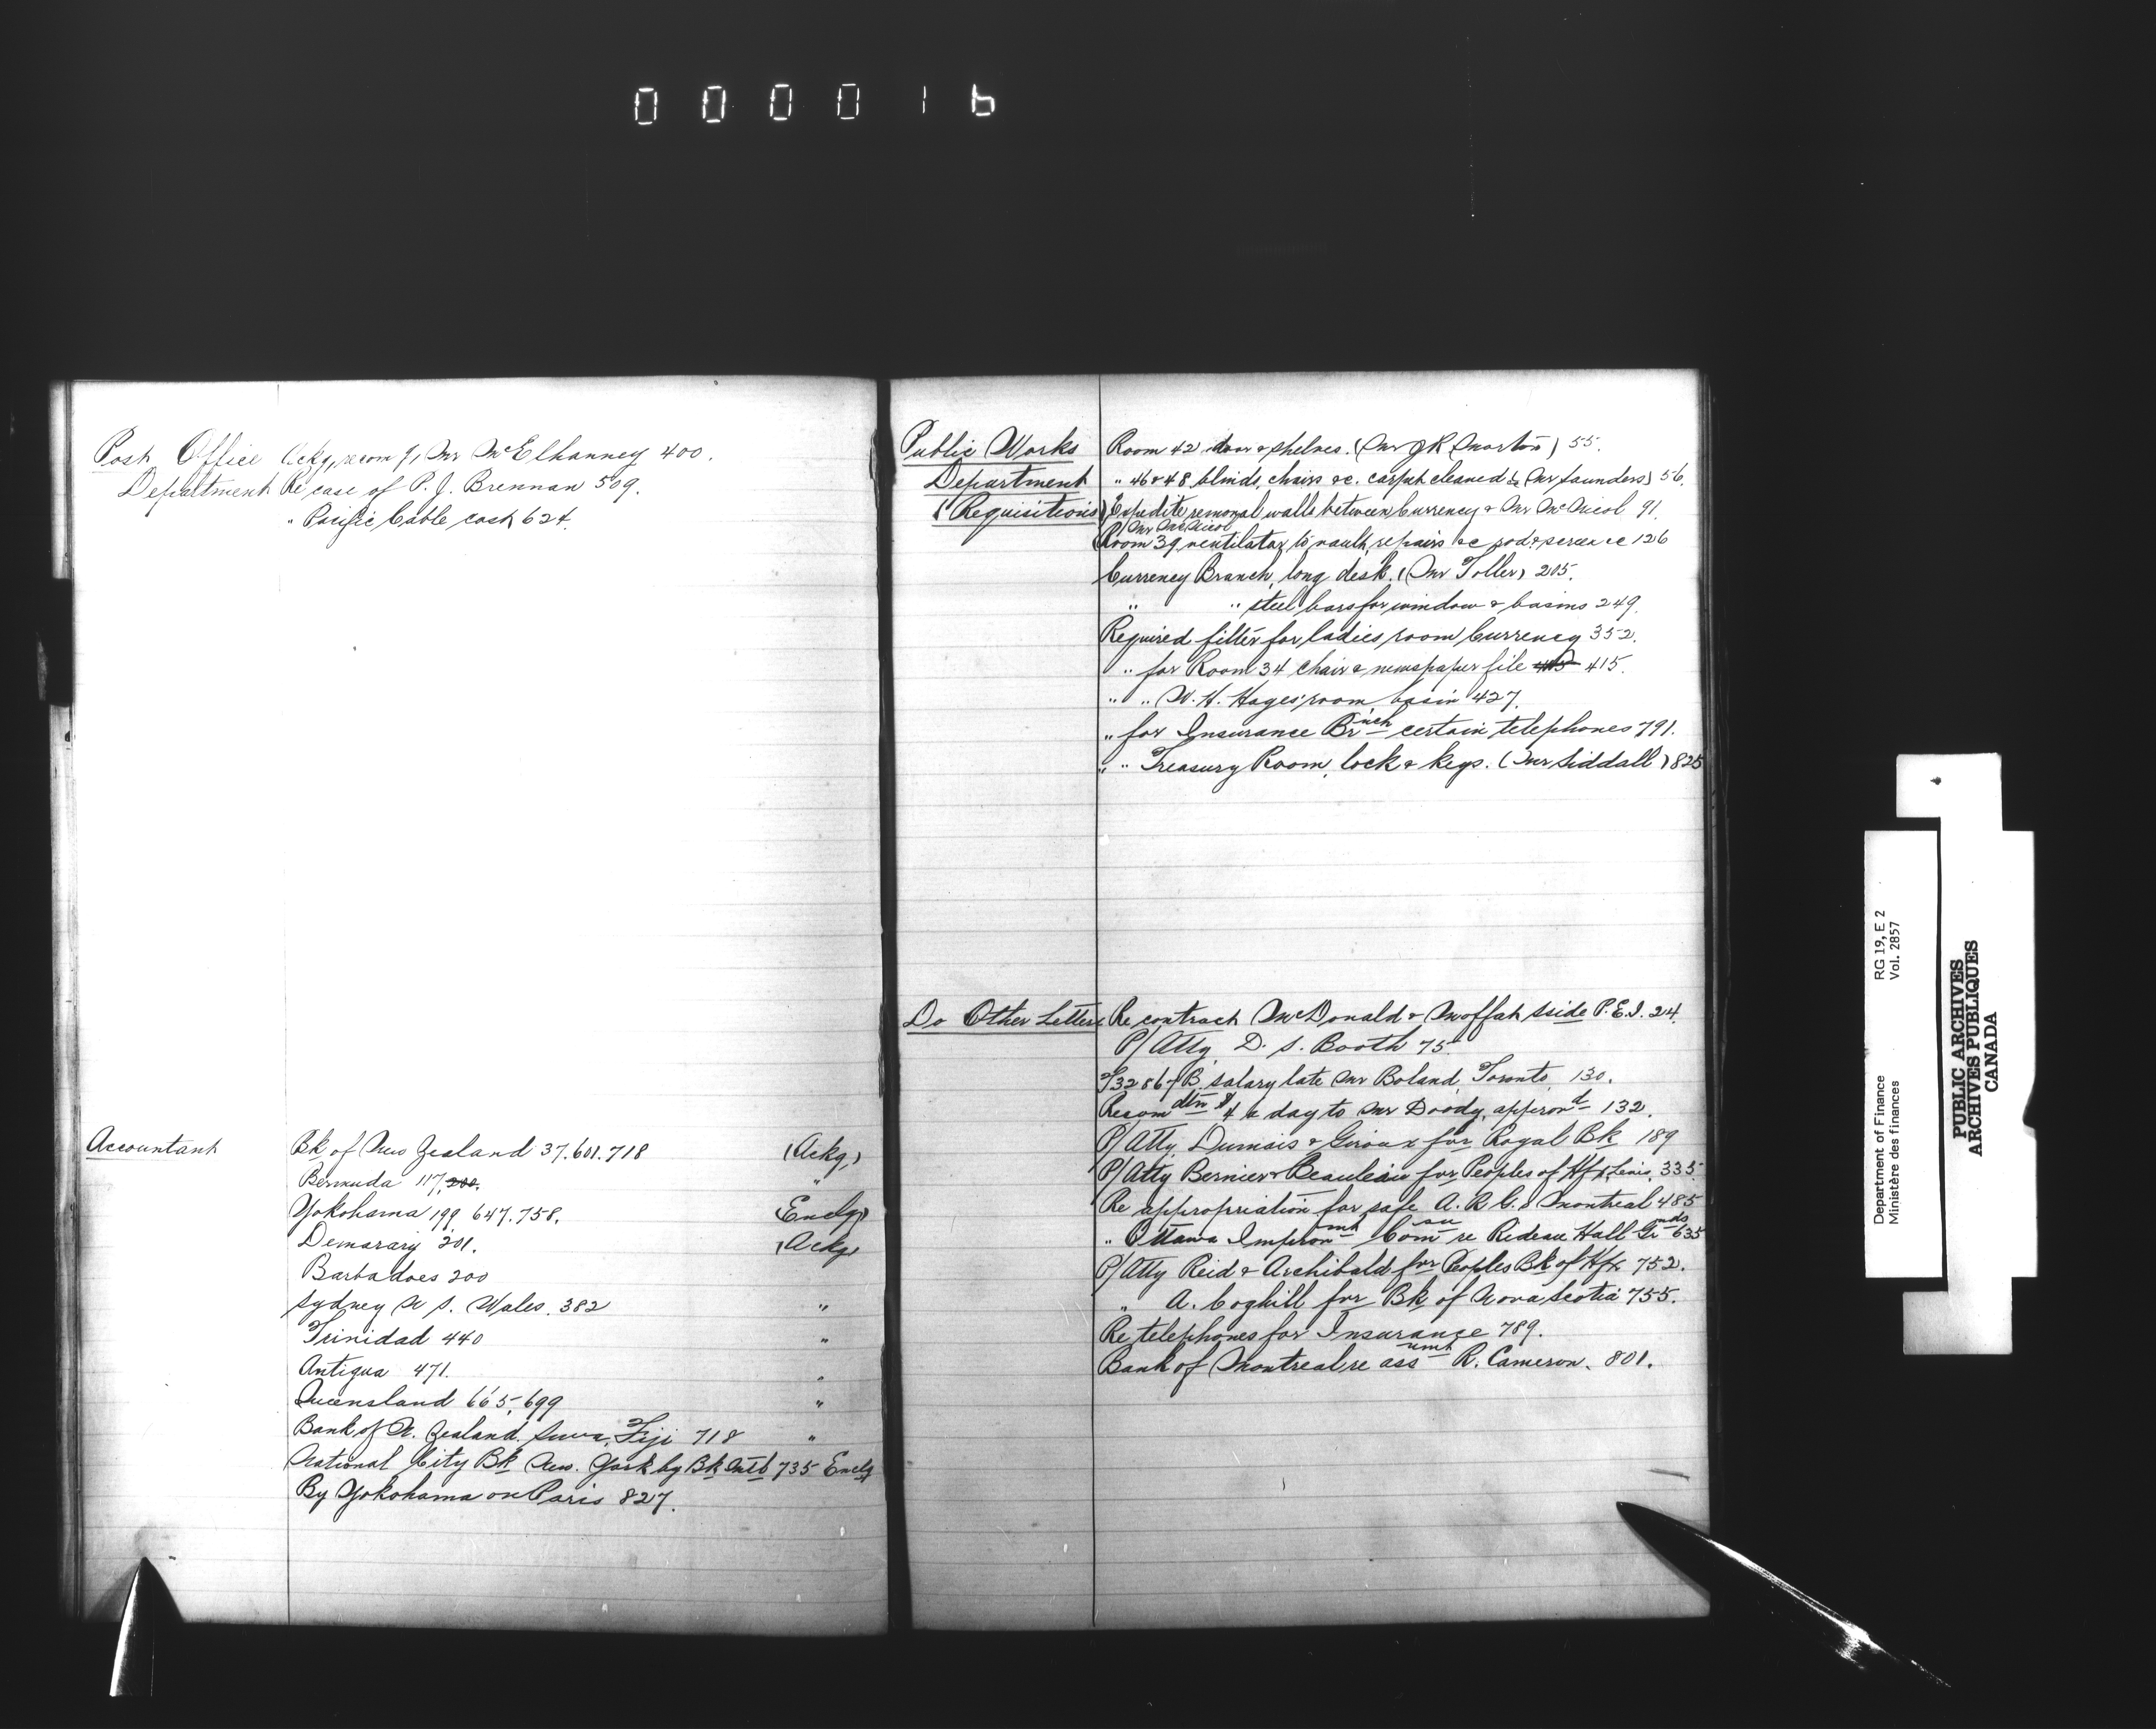 000016
Post Office Ackg, recom of, Mr McElhanney 400.
Department Re case of P. J. Brennan 509.
" Pacific Cable cash 624.
Accountant Bk of New Zealand 37. 601. 718 (Ackg)
Bermuda 117, 200. "
Yokohama 199, 647. 758. (Enclg)
Demarary 201. (Ackg)
Barbadoes 200
Sydney N S. Wales. 382 "
Trinidad 440 "
Antigua 471. "
Queensland 665, 699 "
Bank of N. Zealand. Suva, Fiji 718 "
National City Bk New. York by Bk Mtl 735 Enclg
By Yokohama on Paris 827.
Public Works Room 42 door & shelves. (Mr J R Morton) 55.
Department " 46 & 48 blinds, chairs &c. carpet cleaned & (Mr Saunders) 56.
(Requisitions) Expedite removal walls between Currency & Mr McNicol 91.
(Mr McNicol
Room 39 ventilator to vault, repairs &c rod & screen &c 126
Currency Branch, long desk. (Mr Toller) 205.
" " steel bars for window & basins 249.
Required filter for ladies room Currency 352.
" for Room 34 chair & newspaper file 415.
" " W. H. Hayes' room basin 427.
" for Insurance Brnch certain telephones 791.
" " Treasury Room, lock & keys. (Mr Siddall) 825
Do Other Letters Re contract McDonald & Moffat Sside P.E.I. 24.
P/Atty, D. S. Booth 75
salary late Mr Boland, Toronto, 130.
Recomdtn $4 a day to Mr Doody, approvd 132.
P/Atty Dumais & Giroux for Royal Bk 189
P/Atty Bernier & Beaulieau for Peoples of Hfx, Levis, 335.
Re appropriation for safe A. R G. S Montreal 485
" Ottawa Improvmt Comsn re Rideau Hall Grnds 635
P/Atty Reid & Archibald for Peoples Bk of Hfx 752.
" A. Coghill for Bk of Nova Scotia 755.
Re telephones for Insurance 789.
Bank of Montreal re assnmt R. Cameron. 801.
Department of Finance
Ministère des finances
RG 19, E 2
Vol. 2857
PUBLIC ARCHIVES
ARCHIVES PUBLIQUES
CANADA